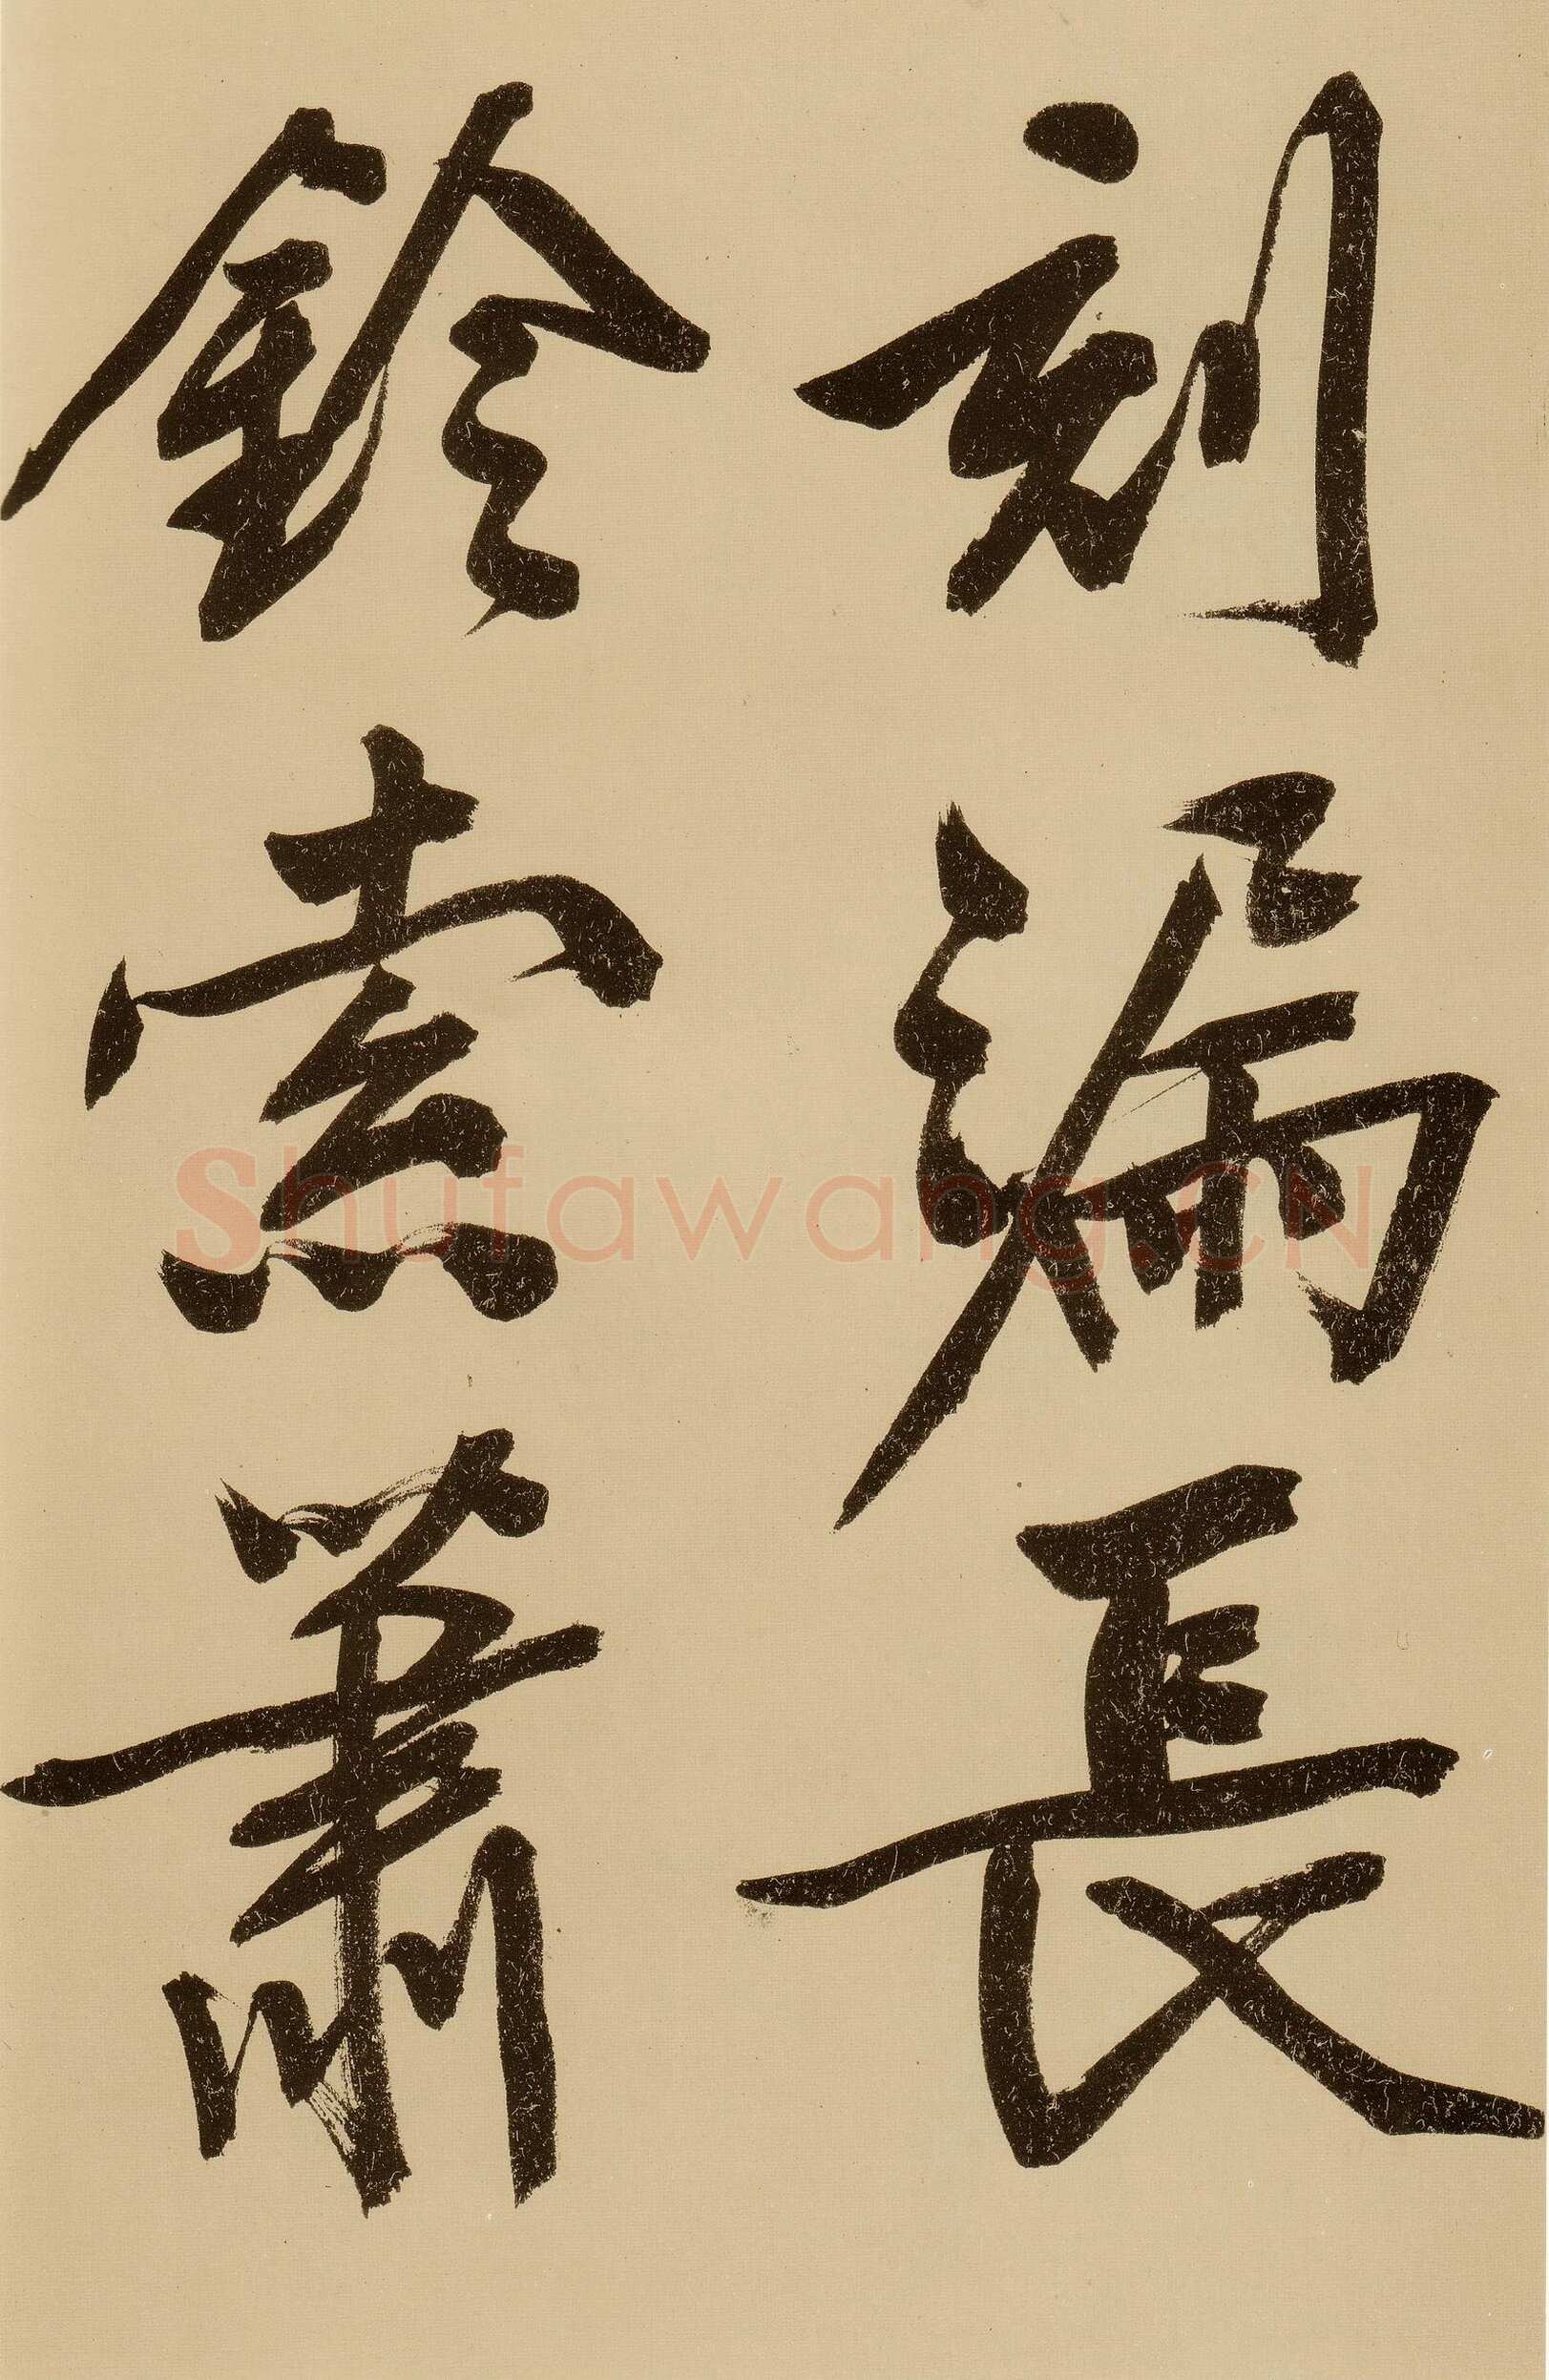 刻漏長
鈴索蕭
shufawang.CN